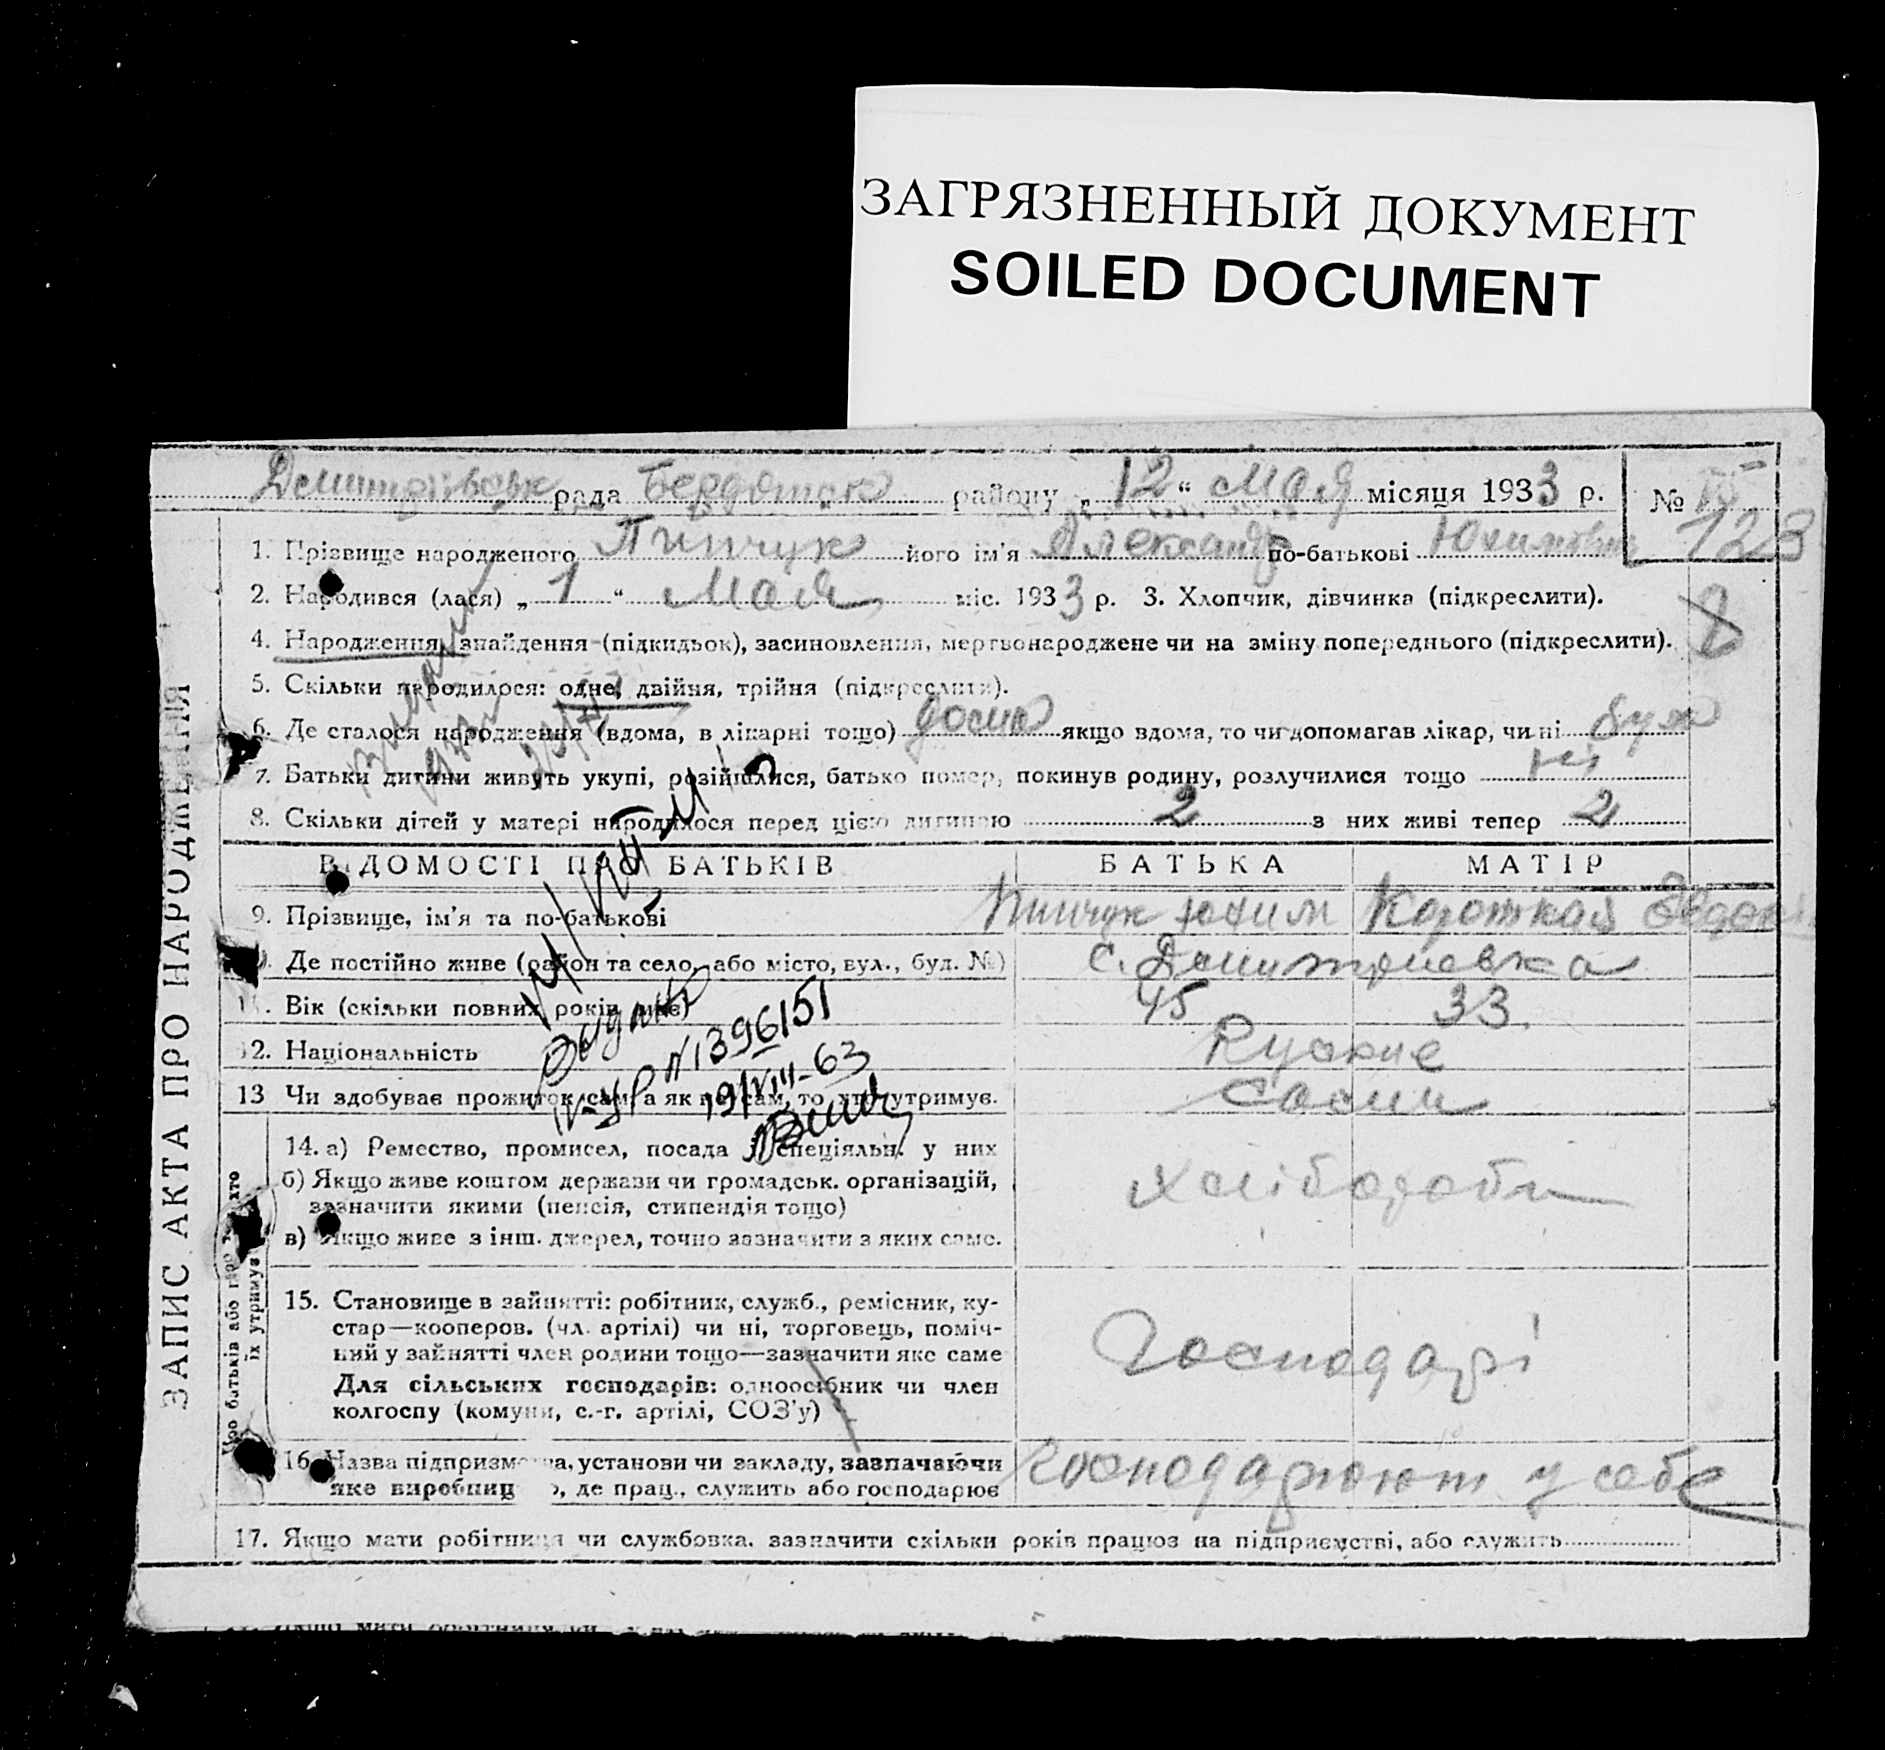 ЗАГРЯЗНЕННЫЙ ДОКУМЕНТ
SOILED DOCUMENT
рада района „ 12 “ Мая місяця 1933 р. №
123
1. Прізвище народженого Пинчук його ім’я Александр по-батькові
2. Народився (лася) „ 1 “ Мая міс. 1933 р. 3. Хлопчик, дівчинка (підкреслити).
4. Народження, знайдення (підкидьок), засиновлення, мертвонароджене чи на зміну попереднього (підкреслити).
5. Скільки народилося: одне, двійня, трійня (підкреслити).
6. Де сталося народження (вдома, в лікарні тощо) дома якщо вдома, то чи допомагав лікар, чи ні
7. Батьки дитини живуть укупі, розійшлися, батько помер, покинув родину, розлучилися тощо ні
8. Скільки дітей у матері народилося перед цією дитиною 2 з них живі тепер 2
ЗАПИС АКТА ПРО НАРОДЖЕННЯ
ВІДОМОСТІ ПРО БАТЬКІВ БАТЬКА МАТІР
9. Прізвище, ім’я та по-батькові Пинчук Юхим Короткая
10. Де постійно живе (район та село, або місто, вул., буд. №) с. Дмитриевка
11. Вік (скільки повних років має) 45 33
12. Національність Руские
13 Чи здобуває прожиток сам, а як не сам, то хто утримує. Сами
N 1396151
19/VIII-63
14. а) Ремество, промисел, посада й спеціяльн. у них
б) Якщо живе коштом держави чи громадськ. організацій,
зазначити якими (пенсія, стипендія тощо)
в) Якщо живе з інш. джерел, точно зазначити з яких саме.
хліборобы
15. Становище в зайнятті: робітник, служб., ремісник, ку-
стар—кооперов. (чл. артілі) чи ні, торговець, поміч-
ний у зайнятті член родини тощо—зазначити яке саме
Для сільських господарів: одноосібник чи член
колгоспу (комуни, с.-г. артілі, СОЗ’у)
Господарі
16. Назва підприємства, установи чи закладу, зазначаючи
яке виробниц о, де прац., служить або господарює
господарюют у себе
17. Якщо мати робітниця чи службовка, зазначити скільки років працює на підприємстві, або служить